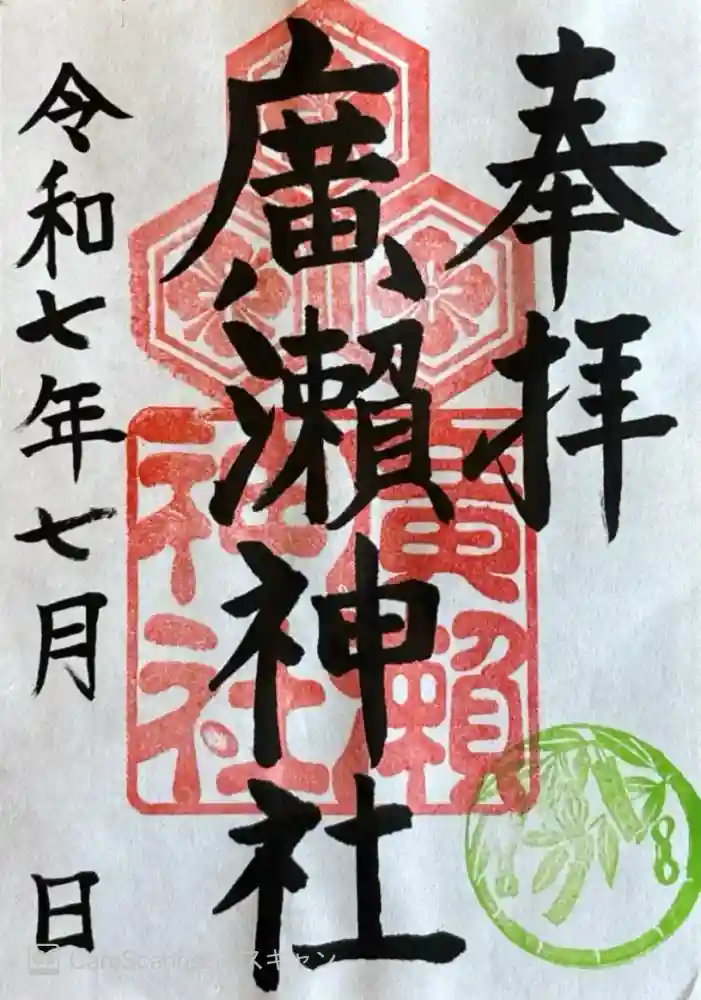 奉拝
廣瀬神社
令和七年七月 日
廣瀬神社
CamScannerでスキャン